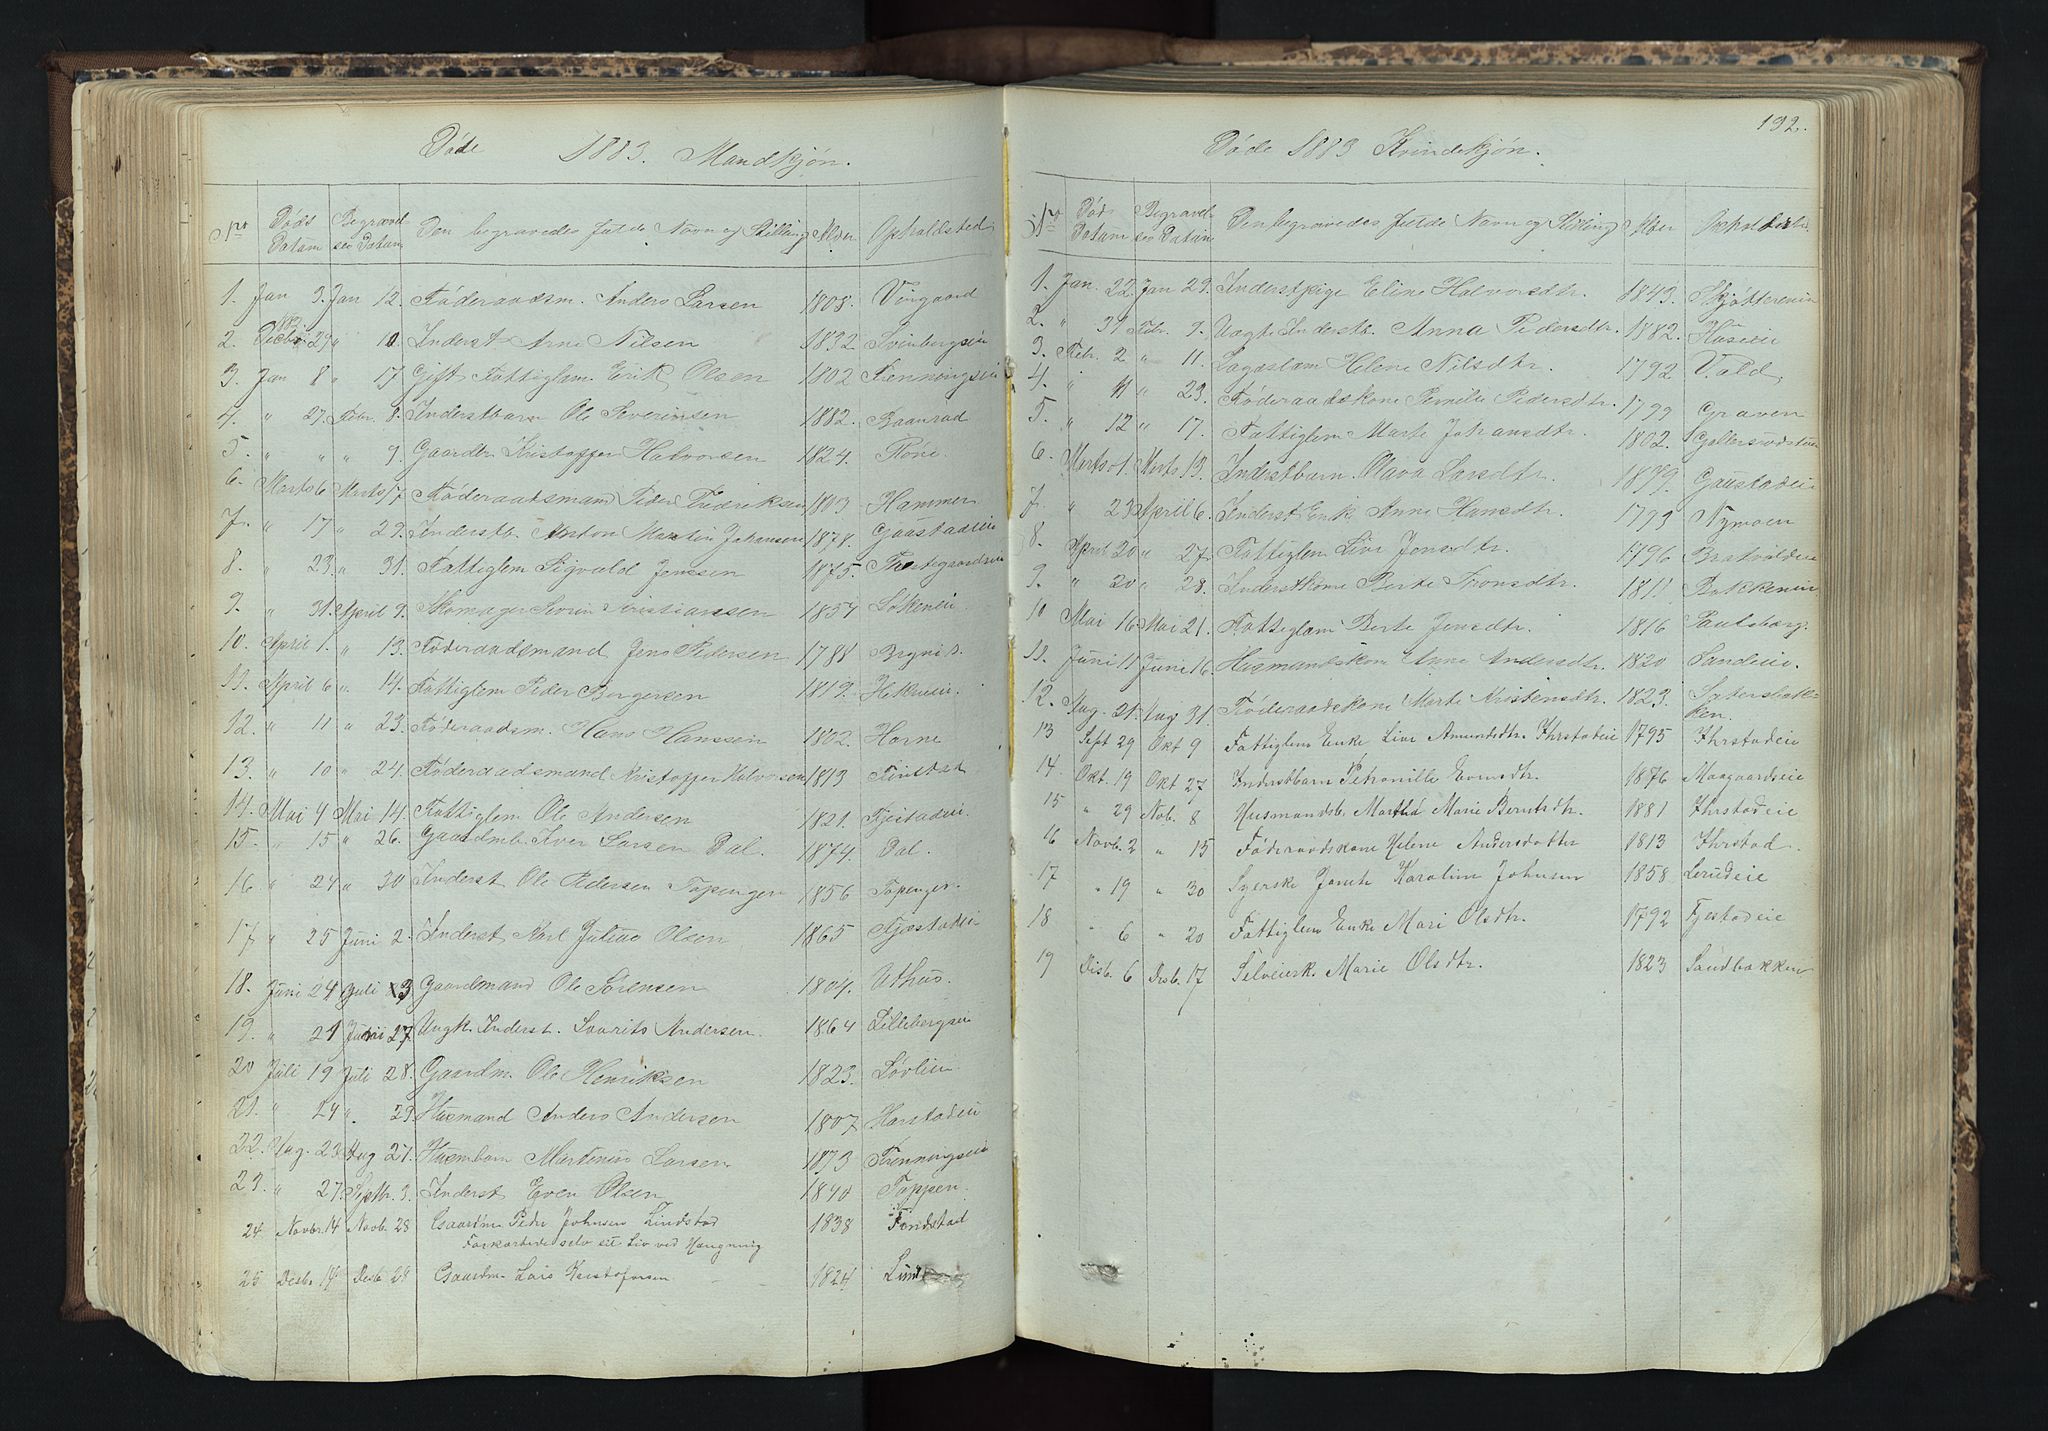 Døde 1883. Mandkjøn.
No Døds Datum Begravelses Datum Den begravedes fulde Navn og Stilling Alder Opholdsted
1. Jan 3. Jan 12. Föderaadsm. Anders Larsen 1808. Vingaard
2. Decbr 1882 29 " 10. Inderst Arne Nilsen 1832 Svinbergseie
3. Jan 8 " 17 Gift Fattiglem Erik Olsen 1802 Fænningseie
4. " 27. Febr. 8. Inderstbarn Ole Severinsen 1882. Baanrud
5. " " " 9. Gaardbr. Kristoffer Halvorsen 1824. Röni
6. Marts 6 Marts 17 Föderaadsmand Peder Fredriksen 1803 Hammer
7. " 17 " 29. Inderstb. Anton Martin Johansen 1878. Gaustadeie
8. " 23. " 31. Fattiglem Sigvald Jenssen 1875.
9. " 31. April 9. Skomager Sevrin Kristianssen 1857 Lökeneie
10. April 1. " 13. Föderaadsmand Jens Pedersen 1788
11. April 6 " 14. Fattiglem Peder Borgersen 1819.
12. " 11 " 23. Föderaadsm. Hans Hanssen 1802. Horne
13. " 10 " 24. Föderaadsmand Kristoffer Halvorsen 1813 Finstad
14. Mai 4 Mai 14. Fattiglem Ole Andersen 1821. Fjestadeie
15. " 15 " 26. Gaardmb. Iver Larsen Dal. 1874. Dal.
16 " 24 " 30 Inderst Ole Pedersen Topenger 1856 Topenger.
17 " 25 Juni 2. Inderst Karl Julius Olsen 1865 Fjestadeie
18. Juni 24 Juli 3 Gaardmand Ole Sörensen 1804. Uthus.
19. " 21 Juni 27. Ungk. Inderst. Lavrits Andersen. 1864 Lillebergseie
20 Juli 19 Juli 28. Gaardm. Ole Henriksen 1823. Lövlien
21. " 24 " 29 Husmand Anders Andersen 1807 Harstadeie
22. Aug. 23 Aug 27. Husmbarn Martinus Larsen 1873 Fænningseie
23. " 27. Septbr. 3. Inderst Even Olsen 1840 Toppen.
24 Novbr. 14 Novb. 28 Gaardm Peder Johnsen Lindstad 1838 Findstad
Forkortede selv sit Liv ved Hængning
25 Desb. 14 Desb 29 Gaardm Lars Kristofersen 1824
192.
Døde 1883 Kvindekjøn.
No Døds Datum Begravelses Datum Den begravedes fulde Navn og Stilling Alder Opholdsted
1. Jan. 22 Jan 29. Inderstpige Eline Halvorsdtr. 1843. Skjöttereneie
2. " 31 Febr. 9. Ungt. Inderstb. Anna Pedersdtr. 1882. Haseie
3. Febr. 2 " 11. Lægdslem Helene Nilsdtr. 1792 Vold
4. " 11 " 23. Föderaadskone Pernille Pedersdtr. 1799 Graven
5. " 12 " 17. Fattiglem Marte Johansdtr. 1802.
6. Marts 1. Marts 13. Inderstbarn Olava Larsdtr. 1879. Gaustadeie
7. " 23 April 6. Inderst Enke Anne Hansdtr. 1793 Nymoen
8. April 20 " 27. Fattiglem Live Jensdtr. 1796 Bratvoldeie
9. " 20 " 28. Inderstkone Berte Tronsdtr. 1811 Bakkeneie
10 Mai 16. Mai 21. Fattiglem Berte Jensdtr. 1816
11. Juni 11 Juni 16. Husmandskone Anne Andersdtr. 1820 Sandeie.
12. Aug. 21. Aug 31. Föderaadskone Marte Kristensdtr. 1823.
13 Sept 29 Okt 9 Fattiglem Enke Live Amundsdtr. Ihrstadeie 1795 Ihrstadeie
14 Okt. 19 Okt 27 Inderstbarn Petronille Evensdtr. 1876 Maagaardseie
15 " 29 Nob. 8 Husmandsb. Martha Marie Berntsdtr. 1881 Ihrstadeie
16 Novb. 2 " 15 Föderaadskone Helene Andersdatter 1813 Ihrstad.
17 " 19 " 30 Syerske Karoline Johnsen 1858 Lerudeie
18 " 6 " 20 Fattiglem Enke Mari Olsdtr. 1792 Fjestadeie
19 Desb. 6 Desb. 17 Selveierk. Marie Olsdtr. 1823 Sandbakken